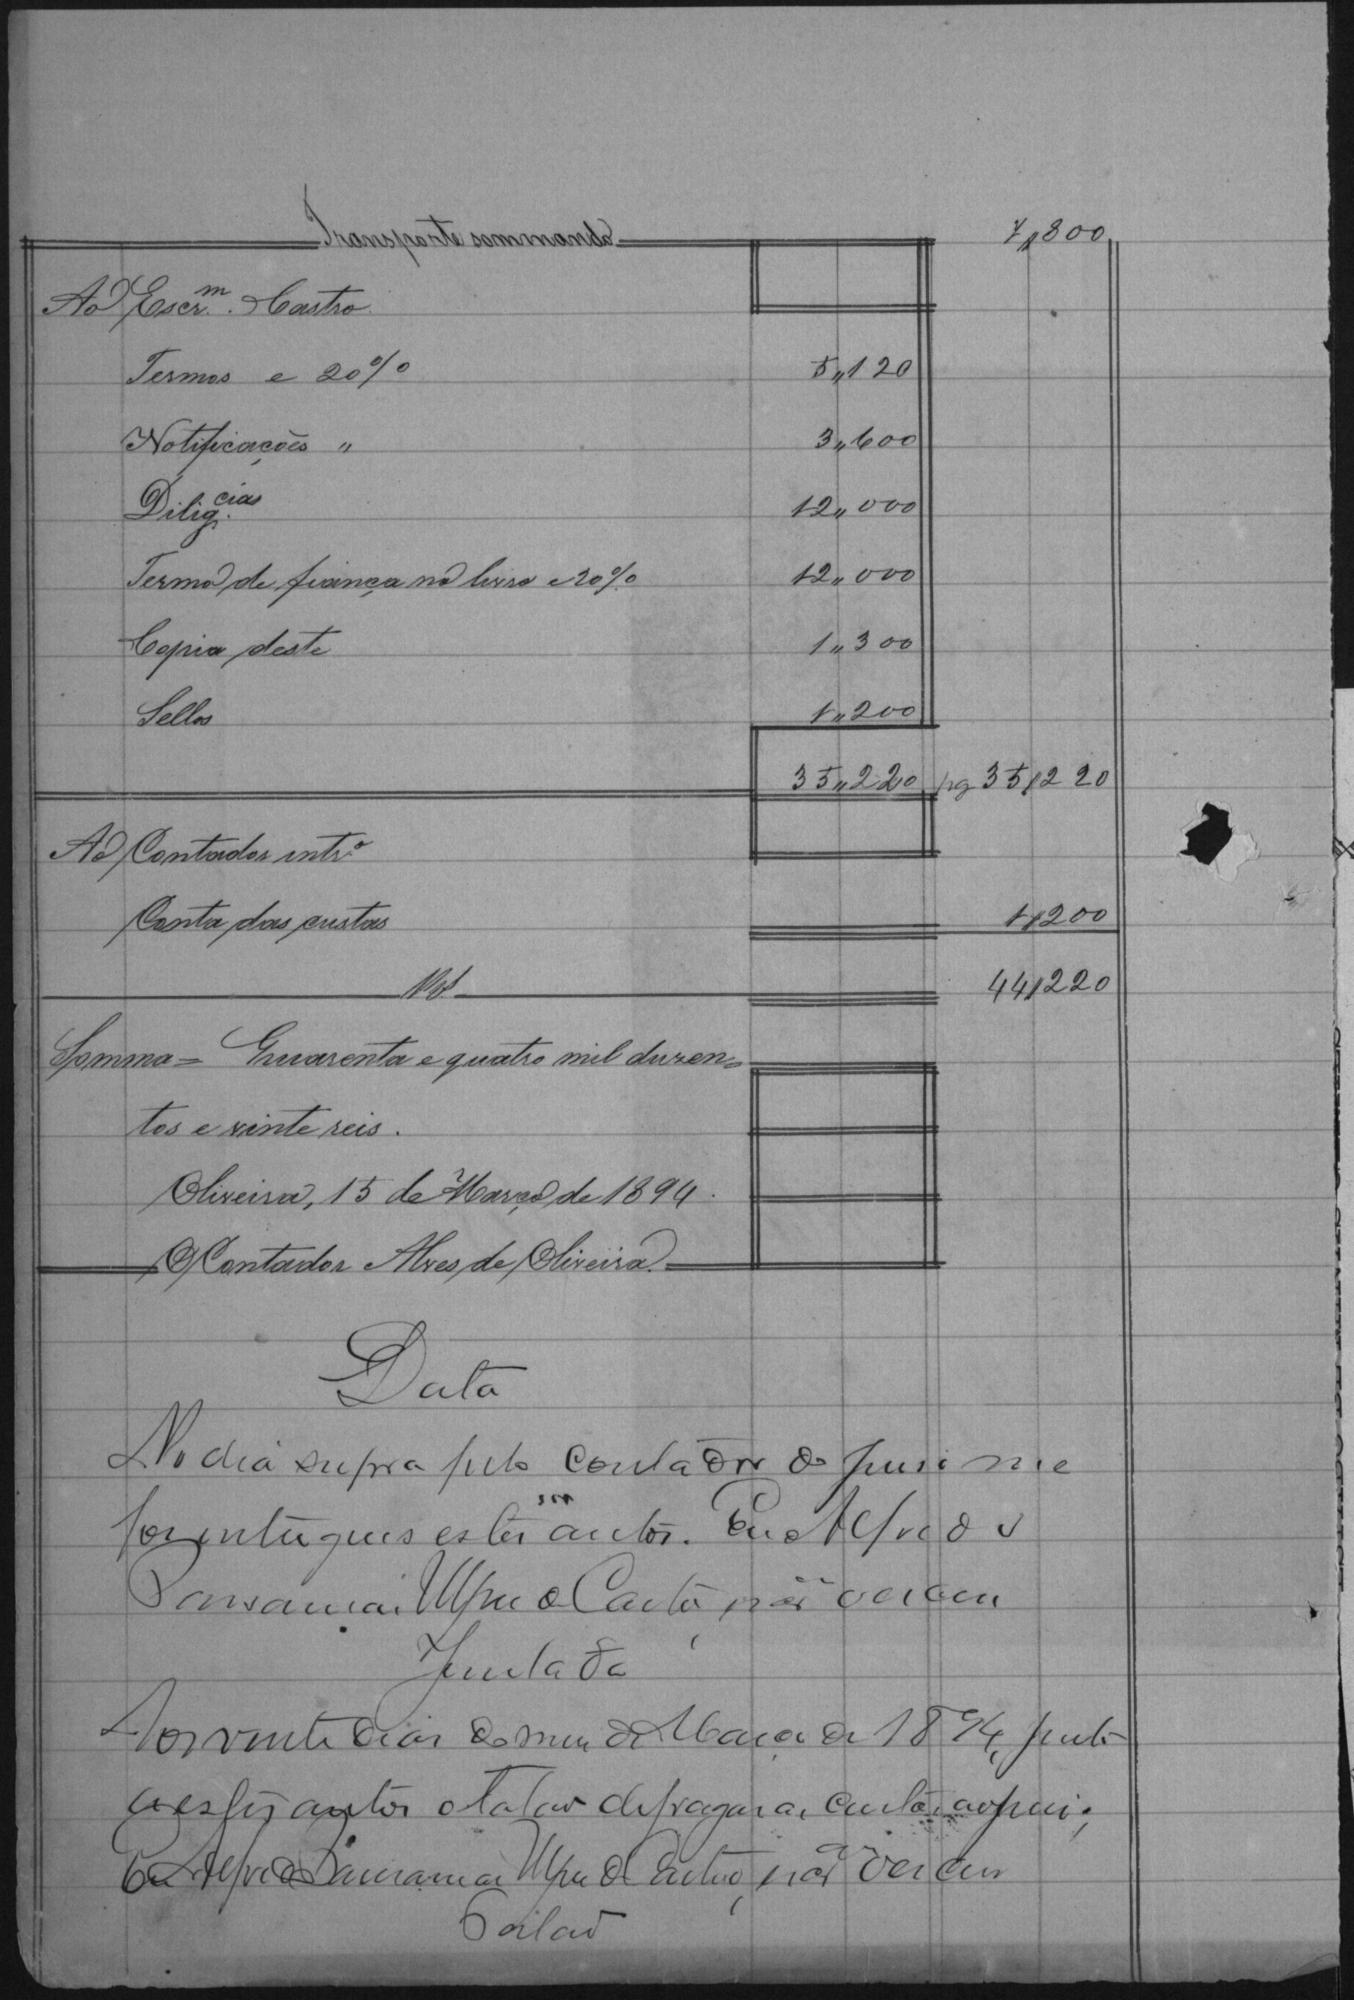 Transporte sommando 7,800
Ao Escr.m Castro
Termos e 20% 5,,120
Notificações ,, 3,,600
Dilig.cias 12,,000
Termo de fiança no livro e 20% 12,,000
Copia deste 1,,300
Sellos 1,,200
35,,220 pg 35,220
Ao Contador intr.o
Conta das custas 1,200
Rs 44,220
Somma = Quarenta e quatro mil duzen=
tos e vinte reis.
Oliveira, 15 de Março de 1894.
O Contador Alves de Oliveira.
Data
No dia supra pelo contador do juizo me
foi entregues estes autos. Eu Alfredo
Castro, escrivão
Juntada
Aos vinte dias do mez de Março de 1894, junto
a estes autos o talão de pagar as custas ao juiz;
Eu Alfredo Castro, escrivão